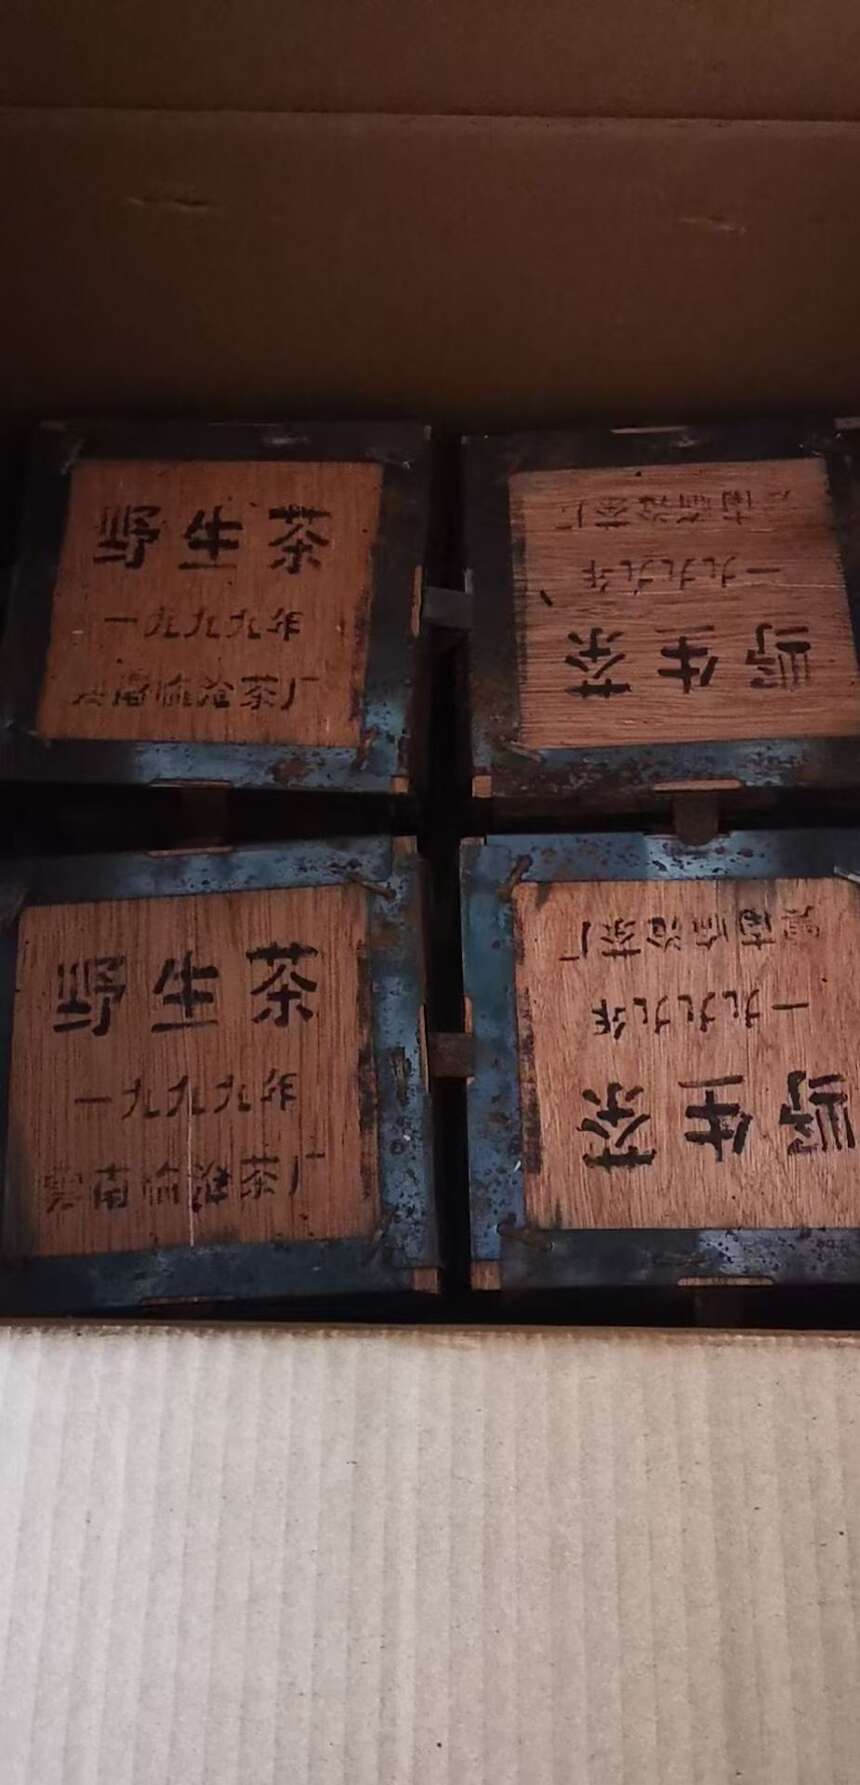 野生茶
一九九九年
雲南临沧茶厂
野生茶
一九九九年
雲南临沧茶厂
野生茶
一九九九年
雲南临沧茶厂
野生茶
一九九九年
雲南临沧茶厂